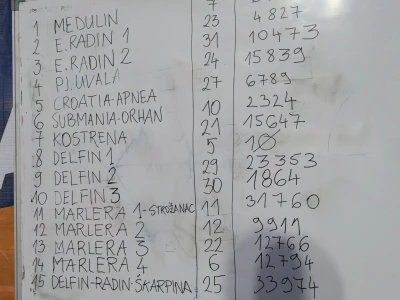 7
1 MEDULIN 23 4827
2 E.RADIN 1 31 10473
3 E.RADIN 2 24 15839
4 PJ.UVALA 27 6789
5 CROATIA-APNEA 10 2324
6 SUBMANIA-ORHAN 21 15647
7 KOSTRENA 5 10
8 DELFIN 1 29 23353
9 DELFIN 2 30 1864
10 DELFIN 3 31760
11 MARLERA 1-STRUŽANAC 11 9911
12 MARLERA 2 12 12766
13 MARLERA 3 22 12794
14 MARLERA 4 6 33974
15 DELFIN-RADIN-ŠKARPINA 25